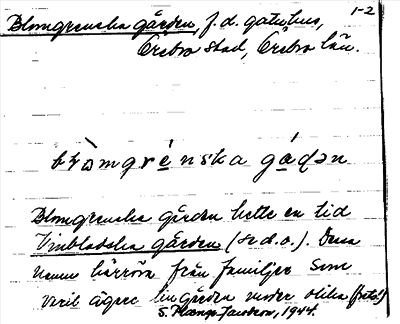 1-2
Blomgrenska gården, f.d. gatuhus,
Örebro stad, Örebro län.
bɽòmgrénska gáɖən
Blomgrenska gården hette en tid
Vinbladska gården (se d.o.). Dessa
namn härröra från familjer som
varit ägare till gården under olika
S. Jansson, 1944.